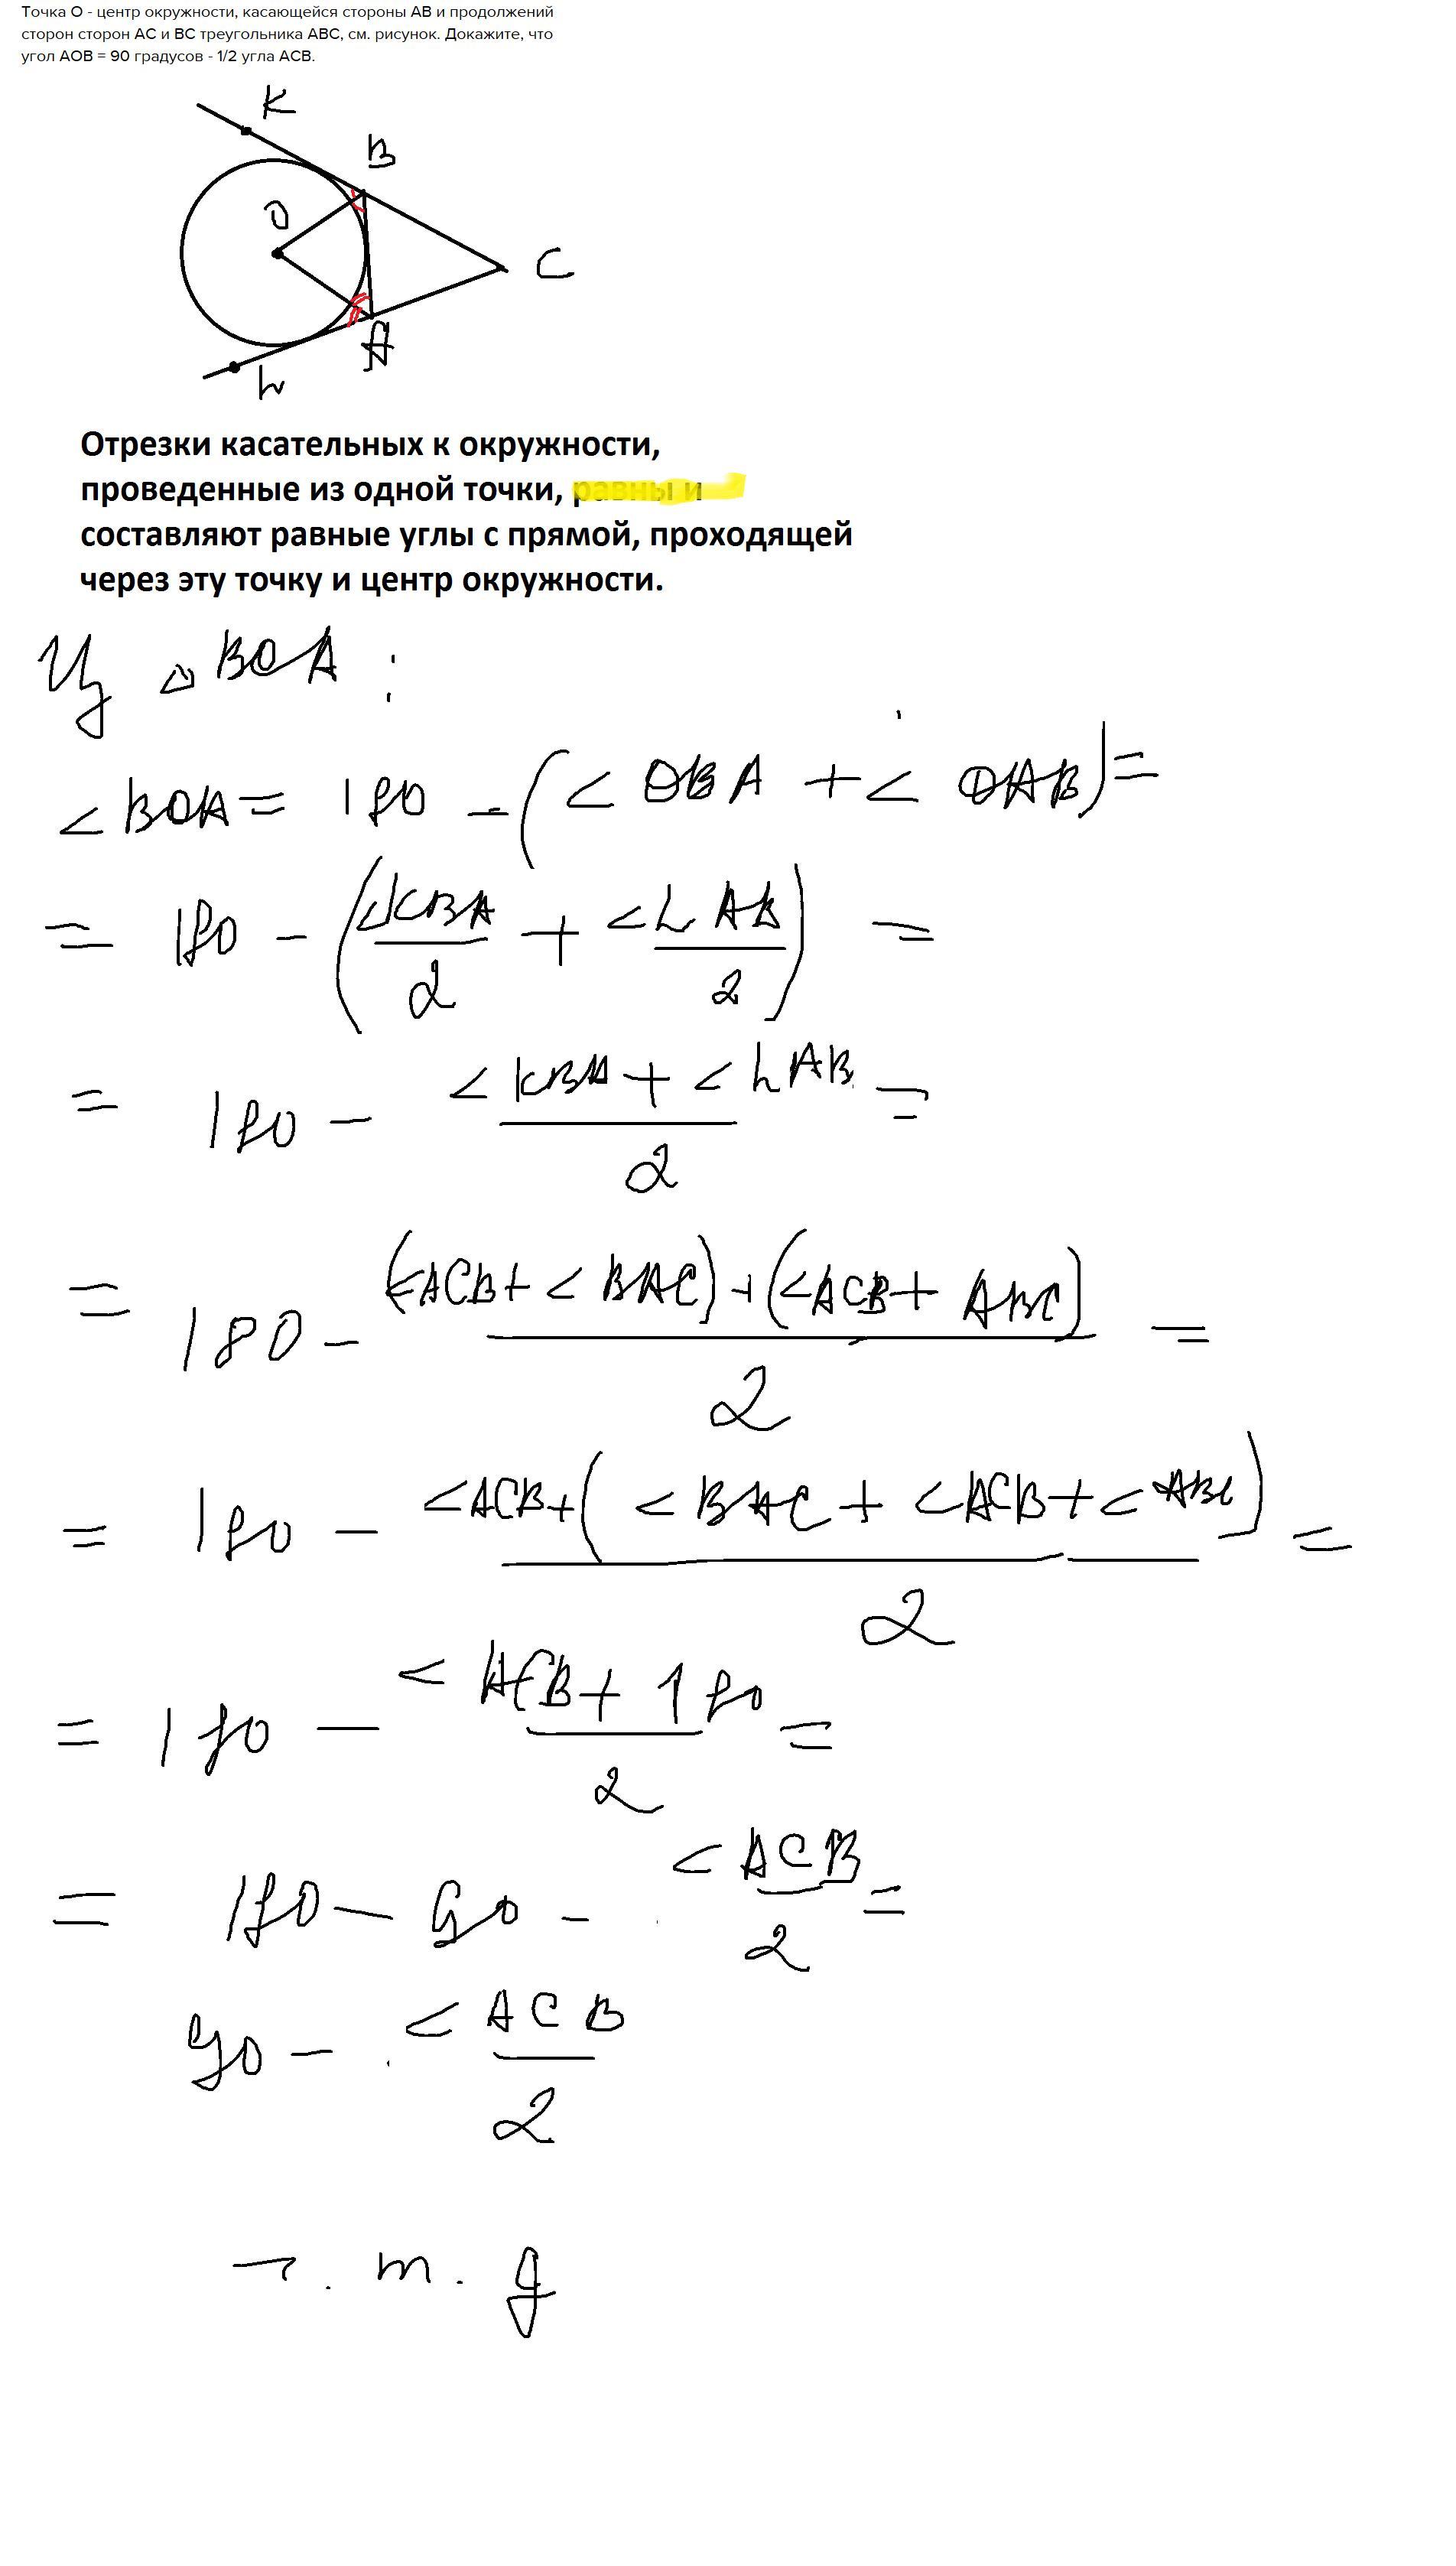 Точка О - центр окружности, касающейся стороны АВ и продолжений
сторон сторон АС и ВС треугольника АВС, см. рисунок. Докажите, что
угол АОВ = 90 градусов - 1/2 угла АСВ.
K
B
O
C
A
L
Отрезки касательных к окружности,
проведенные из одной точки, равны и
составляют равные углы с прямой, проходящей
через эту точку и центр окружности.
Из △ BOA :
< BOA = 180 - (< OBA + < OAB) =
= 180 - (<KBA/2 + <LAB/2) =
= 180 - (< KBA + < LAB)/2 =
= 180 - ((<ACB + < BAC) + (<ACB + ABC))/2 =
= 180 - (<ACB + (< BAC + <ACB + <ABC))/2 =
= 180 - (< ACB + 180)/2 =
= 180 - 90 - < ACB/2 =
90 - < ACB/2
ч. т. д